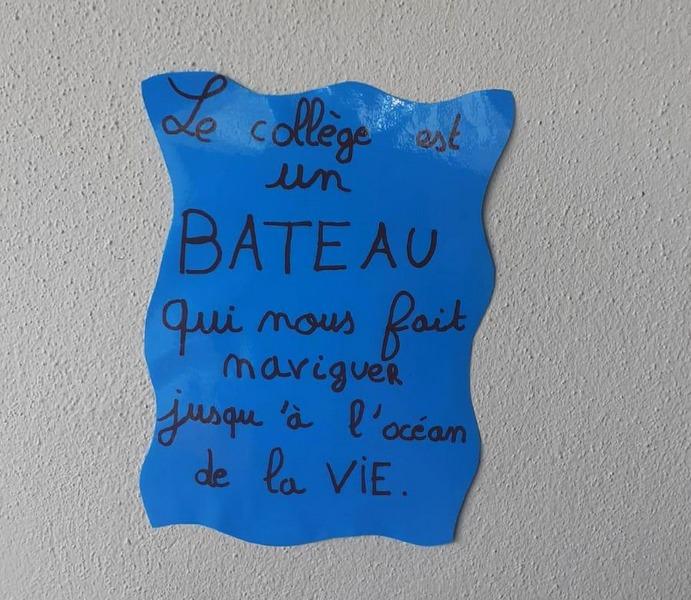 Le collège est
un
BATEAU
qui nous fait
naviguer
jusqu'à l'océan
de la ViE.